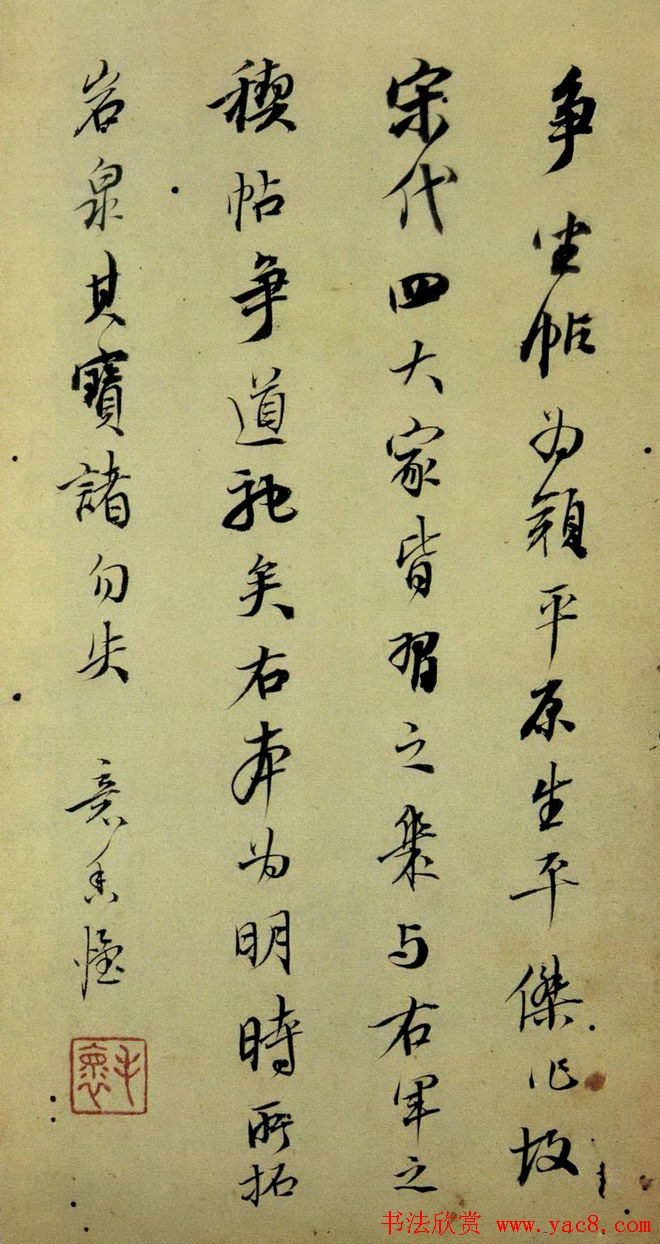 争坐帖为颜平原生平傑作故
宋代四大家皆習之与右軍之
稧帖争道驰矣右本为明時所拓
岩泉其寶諸勿失
书法欣赏 www.yac8.com